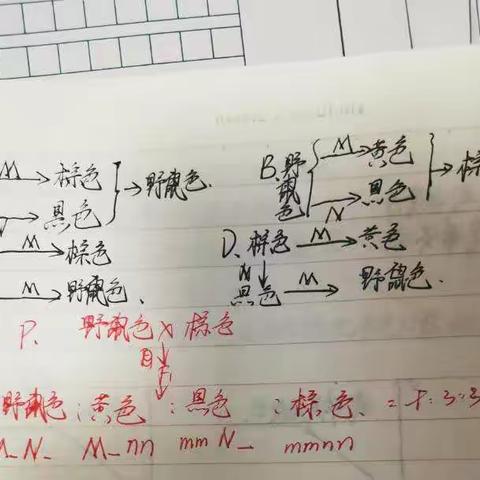 M→棕色
B.野鼠色 M→黄色
→黑色 →野鼠色
N→黑色 →棕
M→棕色
D.棕色 M→黄色
M→野鼠色.
N↓黑色 M→野鼠色.
P. 野鼠色×棕色
↓
野鼠色:黄色:黑色:棕色.=9:3:3
M_N_ M_nn mmN_ mmnn